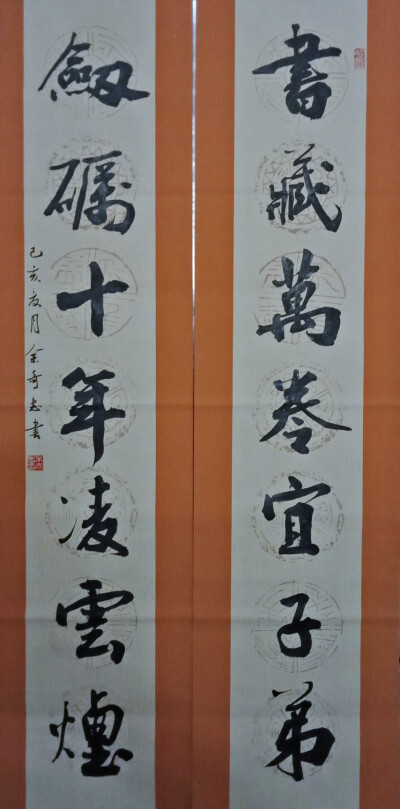 書藏萬卷宜子弟
劔礪十年凌雲煙
己亥夏月余奇志書